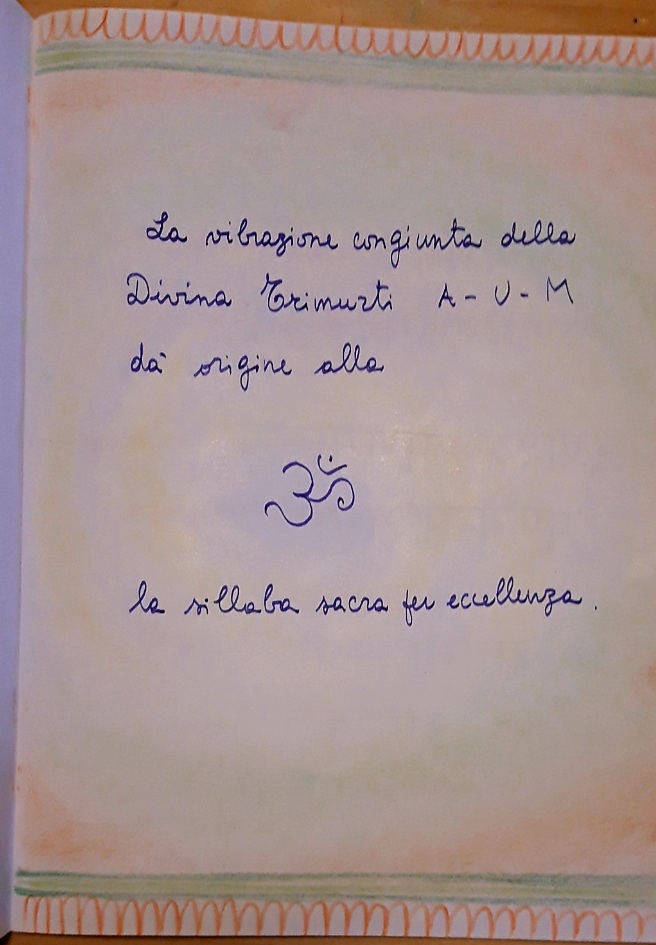 La vibrazione congiunta della
Divina Trimurti A - U - M
dà origine alla
ॐ
la sillaba sacra per eccellenza.